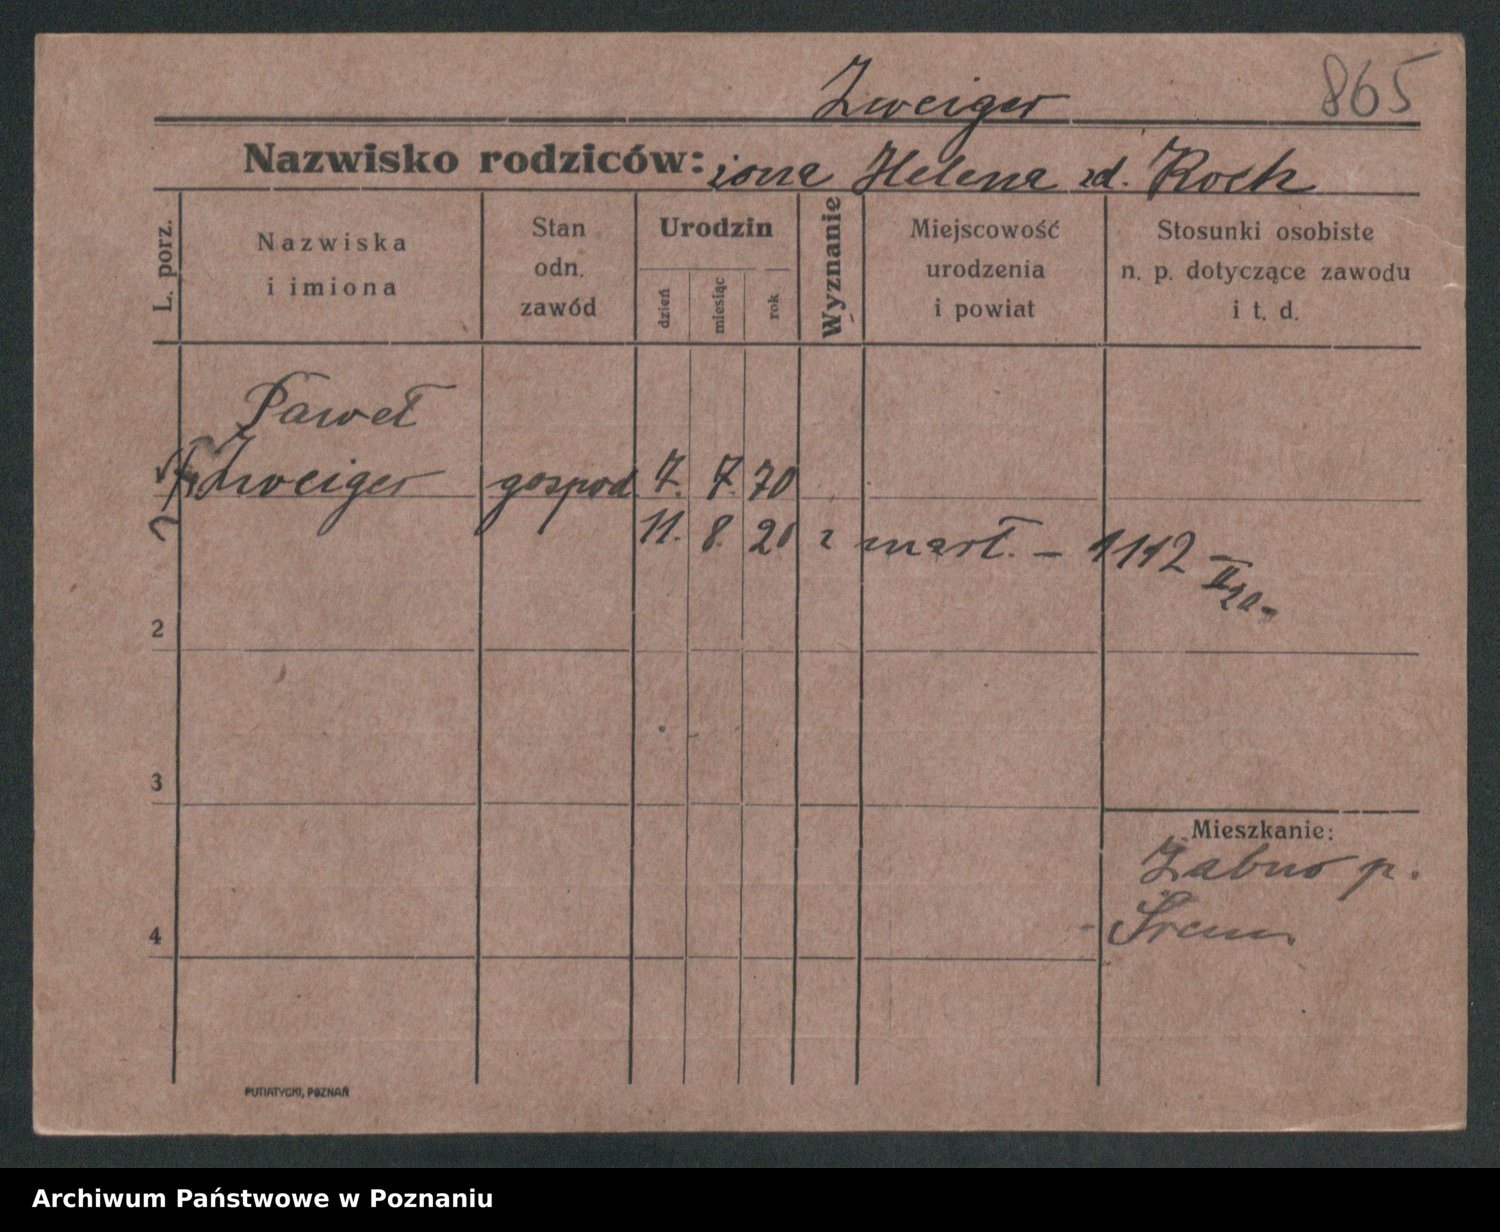 Zweiger 865
Nazwisko rodziców: żona Helena zd. Rock
L. porz.
Nazwiska
i imiona
Stan
odn.
zawód
Urodzin
dzień
miesiąc
rok
Wyznanie
Miejscowość
urodzenia
i powiat
Stosunki osobiste
n. p. dotyczące zawodu
i t. d.
Paweł
Zweiger gospod 7. 7. 70
11. 8. 20 zmarł. – 1112 II/20
2
3
Mieszkanie:
Żabno p.
Śrem
4
PUTIATYCKI, POZNAŃ
Archiwum Państwowe w Poznaniu